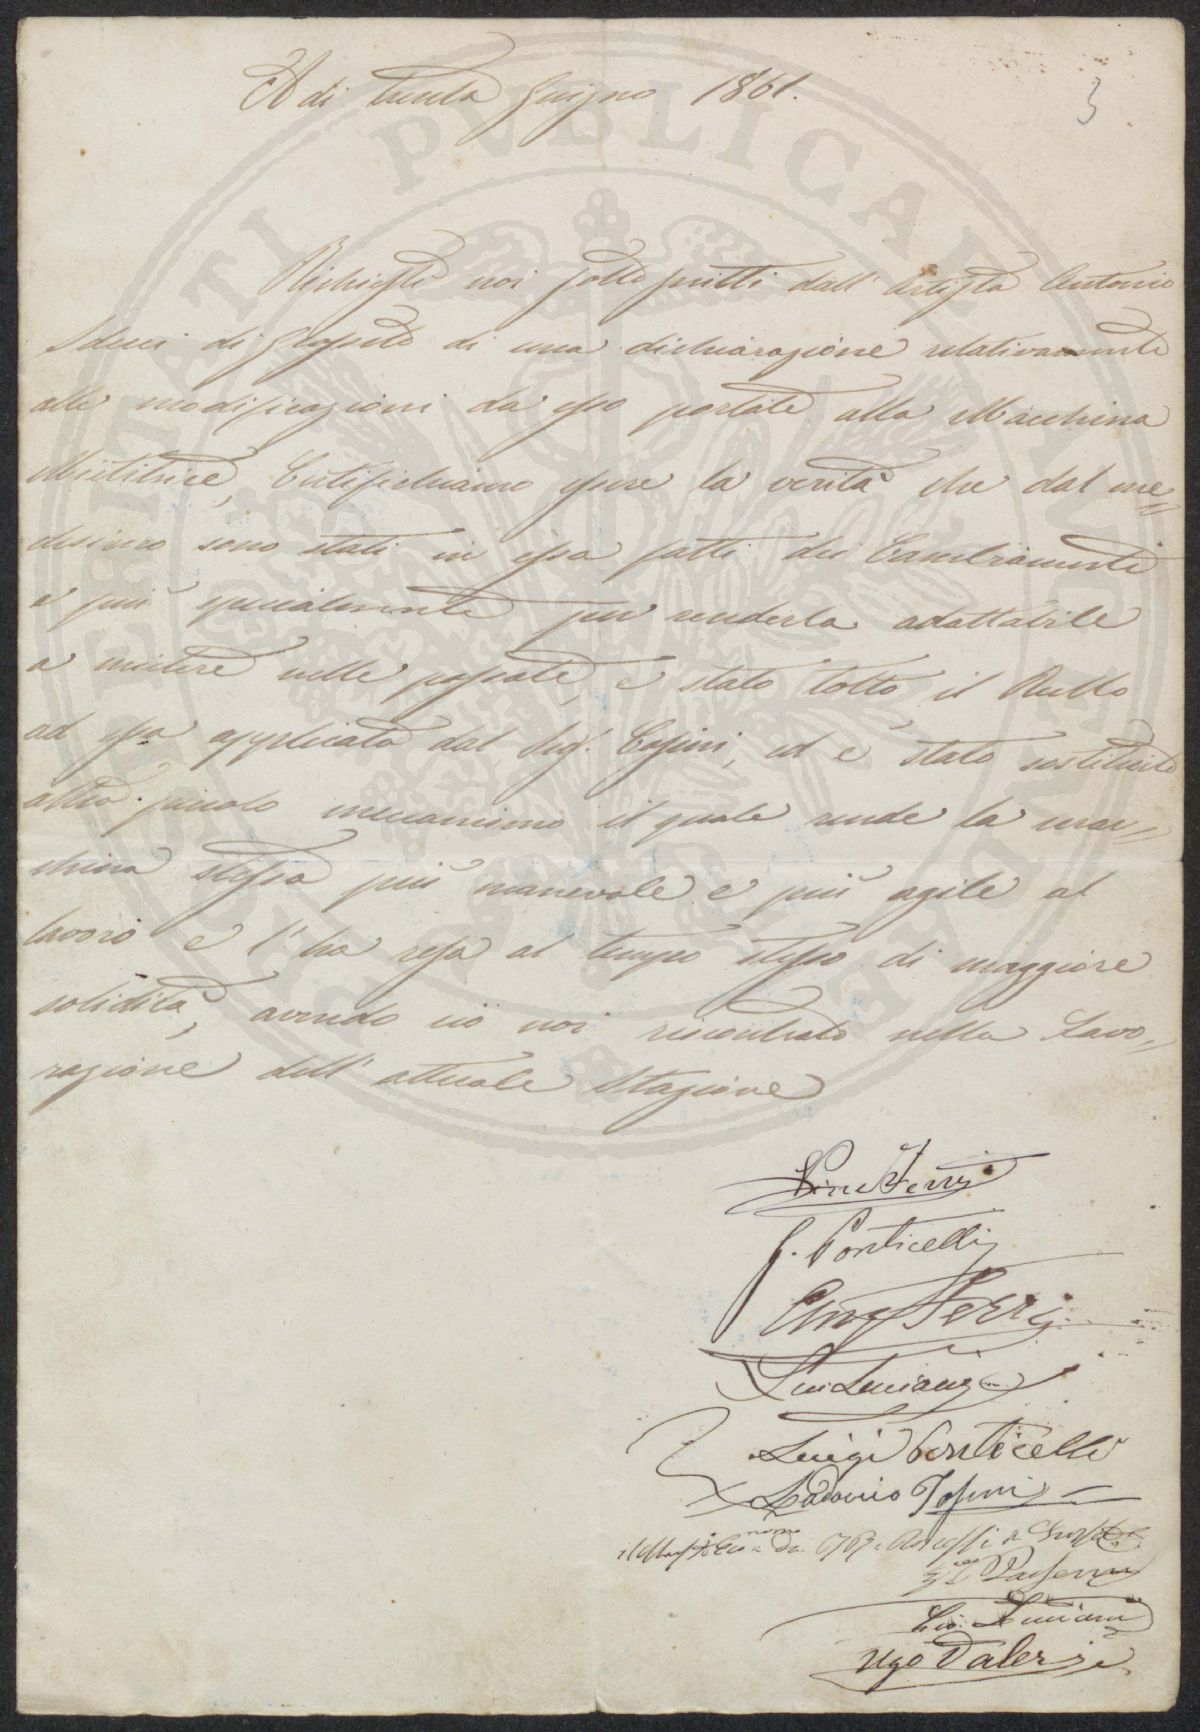 A dì trenta Giugno 1861.
3
Richiesti noi sottoscritti dall' Artista Antonio
di Grosseto di una dichiarazione relativamente
alle modificazioni da esso portate alla Macchina
Mietitrice, Certifichiamo essere la verità che dal me=
desimo sono stati in essa fatti dei Cambiamenti
e più specialmente per renderla adattabile
a mietere nelle passate, è stato tolto il Rullo
ad essa applicato dal Sig. Cosimi, ed è stato sostituito
altro piccolo meccanismo il quale rende la mac=
china stessa più manevole e più agile al
lavoro e l' ha resa al tempo stesso di maggiore
solidità, avendo ciò noi riscontrato nella Lavo=
razione dell' attuale Stagione
Ferri
G. Ponticelli
Ferri
Luciani
Luigi Ponticelli
Lodovico Tosini
Passerini
Gio. Luciani
Ugo Valeri
SENATI PUBLICAE